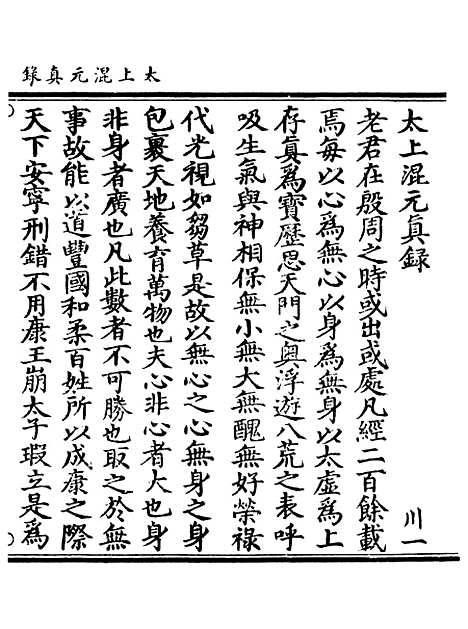 太上混元真錄
太上混元真錄
川一
老君在殷周之時或出或處凡經二百餘載
焉每以心爲無心以身爲無身以太虛爲上
存真爲寶歷思天門之奧浮遊八荒之表呼
吸生氣與神相保無小無大無醜無好榮祿
代光視如芻草是故以無心之心無身之身
包裹天地養育萬物也夫心非心者大也身
非身者廣也凡此數者不可勝也取之於無
事故能以道豐國和柔百姓所以成康之際
天下安寧刑錯不用康王崩太子瑕立是爲